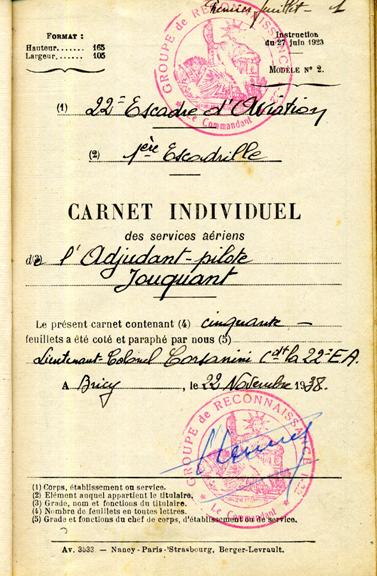 Premier feuillet - 1
FORMAT :
Hauteur...... 165
Largeur...... 105
Instruction
du 27 juin 1923
MODÈLE N° 2.
GROUPE de RECONNAISSANCE
Le Commandant
(1) 22e Escadre d'Aviation
(2) 1ère Escadrille
CARNET INDIVIDUEL
des services aériens
de(3) l'Adjudant-pilote
Jouquant
Le présent carnet contenant (4) cinquante -
feuillets a été coté et paraphé par nous (5)
Lieutenant-Colonel Corsanini Cdt la 22e E.A.
A Bricy, le 22 Novembre 1938.
GROUPE de RECONNAISSANCE
Le Commandant
(1) Corps, établissement ou service.
(2) Elément auquel appartient le titulaire.
(3) Grade, nom et fonctions du titulaire.
(4) Nombre de feuillets en toutes lettres.
(5) Grade et fonctions du chef de corps, d'établissement ou de service.
Av. 3533 — Nancy-Paris-Strasbourg, Berger-Levrault.